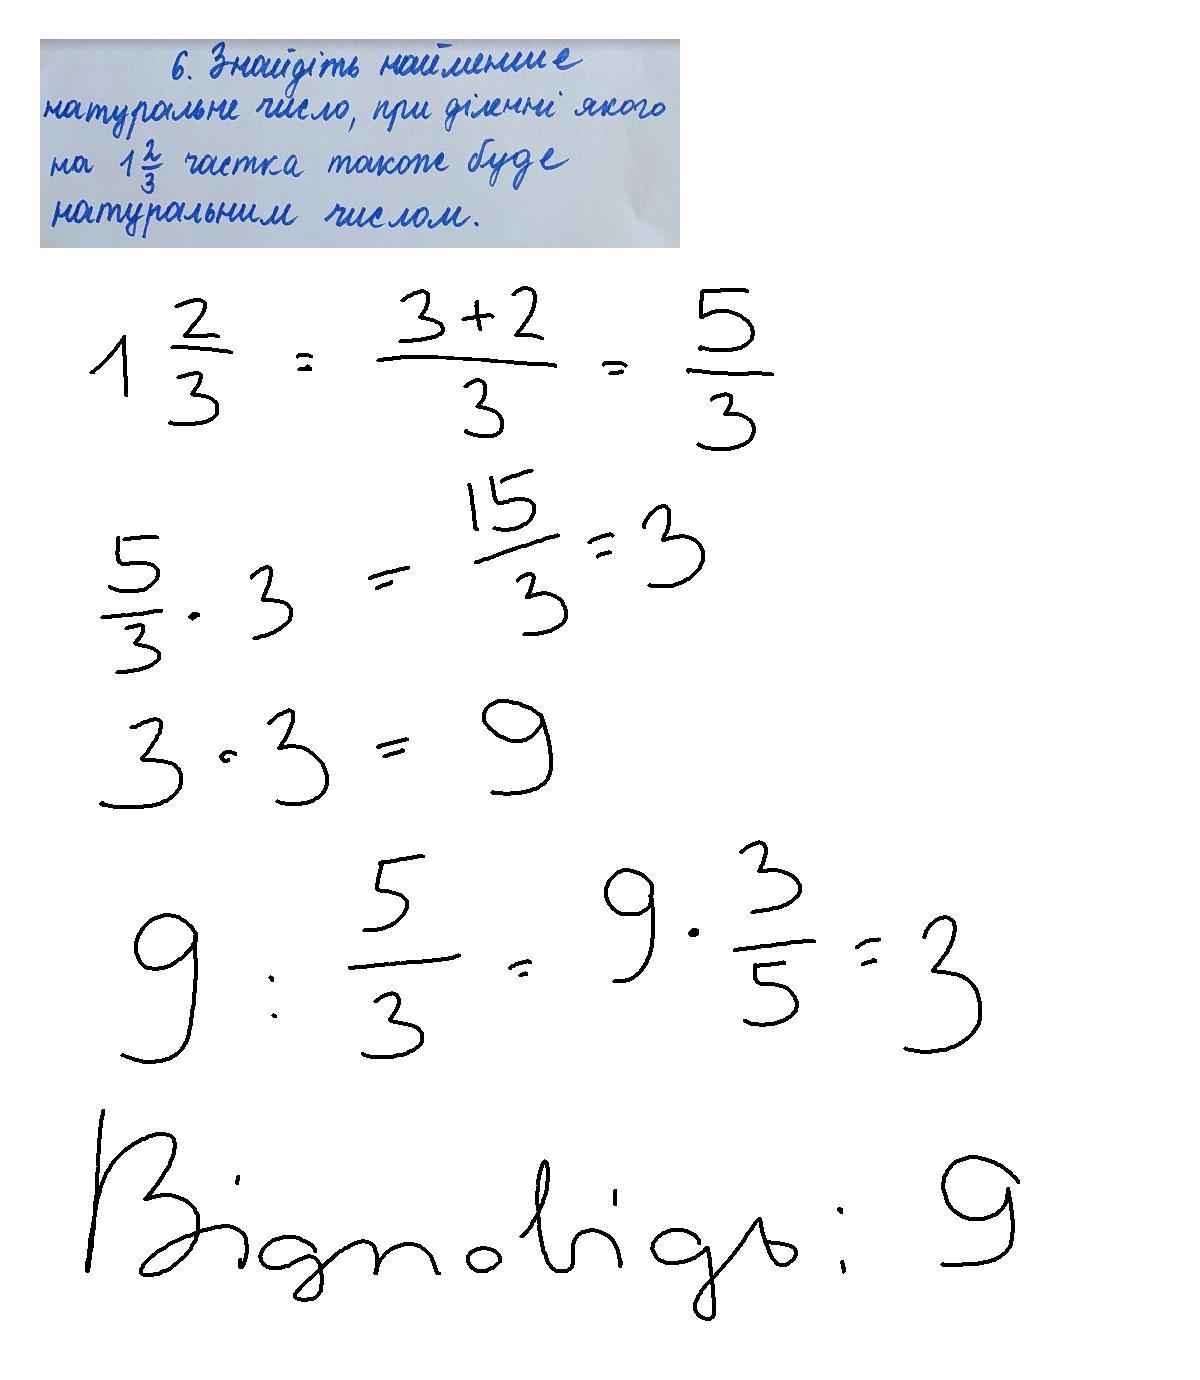 6. Знайдіть найменше
натуральне число, при діленні якого
на 1 2/3 частка також буде
натуральним числом.
1 2/3 = (3+2)/3 = 5/3
5/3 · 3 = 15/3 = 3
3 · 3 = 9
9 : 5/3 = 9 · 3/5 = 3
Відповідь: 9